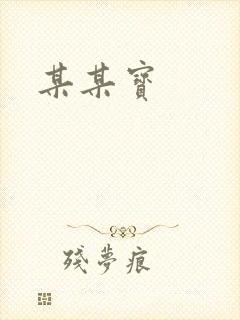 某某寶
殘夢痕